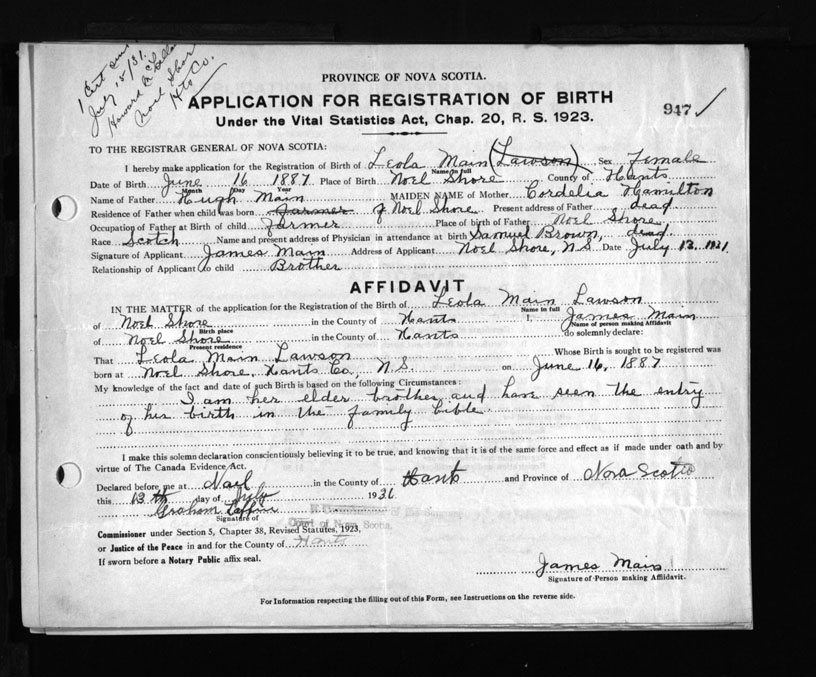 1 Cert
July 15/31.
Howard
Noel Shore
Hts Co.
PROVINCE OF NOVA SCOTIA.
APPLICATION FOR REGISTRATION OF BIRTH
947 ✓
Under the Vital Statistics Act, Chap. 20, R. S. 1923.
TO THE REGISTRAR GENERAL OF NOVA SCOTIA:
I hereby make application for the Registration of Birth of Leola Main (Lawson) Sex Female
Name in full
Date of Birth June 16 1887 Place of Birth Noel Shore County of Hants
Month Day Year
Name of Father Hugh Main MAIDEN NAME of Mother Cordelia Hamilton
Residence of Father when child was born Farmer of Noel Shore Present address of Father dead
Occupation of Father at Birth of child farmer Place of birth of Father Noel Shore
Race Scotch Name and present address of Physician in attendance at birth Samuel Brown, dead.
Signature of Applicant James Main Address of Applicant Noel Shore, N.S. Date July 13, 1931
Relationship of Applicant to child Brother
AFFIDAVIT
IN THE MATTER of the application for the Registration of the Birth of Leola Main Lawson
Name in full
of Noel Shore in the County of Hants I, James Main
Birth place Name of person making Affidavit
of Noel Shore in the County of Hants do solemnly declare:
Present residence
That Leola Main Lawson Whose Birth is sought to be registered was
born at Noel Shore, Hants Co, N.S. on June 16, 1887
My knowledge of the fact and date of such Birth is based on the following Circumstances:
I am her elder brother and have seen the entry
of her birth in the family bible
I make this solemn declaration conscientiously believing it to be true, and knowing that it is of the same force and effect as if made under oath and by
virtue of The Canada Evidence Act.
Declared before me at Noel in the County of Hants and Province of Nova Scotia
this 13th day of July 1931
Graham
Signature of
Court of Nova Scotia.
Commissioner under Section 5, Chapter 38, Revised Statutes, 1923,
or Justice of the Peace in and for the County of Hants
If sworn before a Notary Public affix seal.
James Main
Signature of Person making Affidavit.
For Information respecting the filling out of this Form, see Instructions on the reverse side.